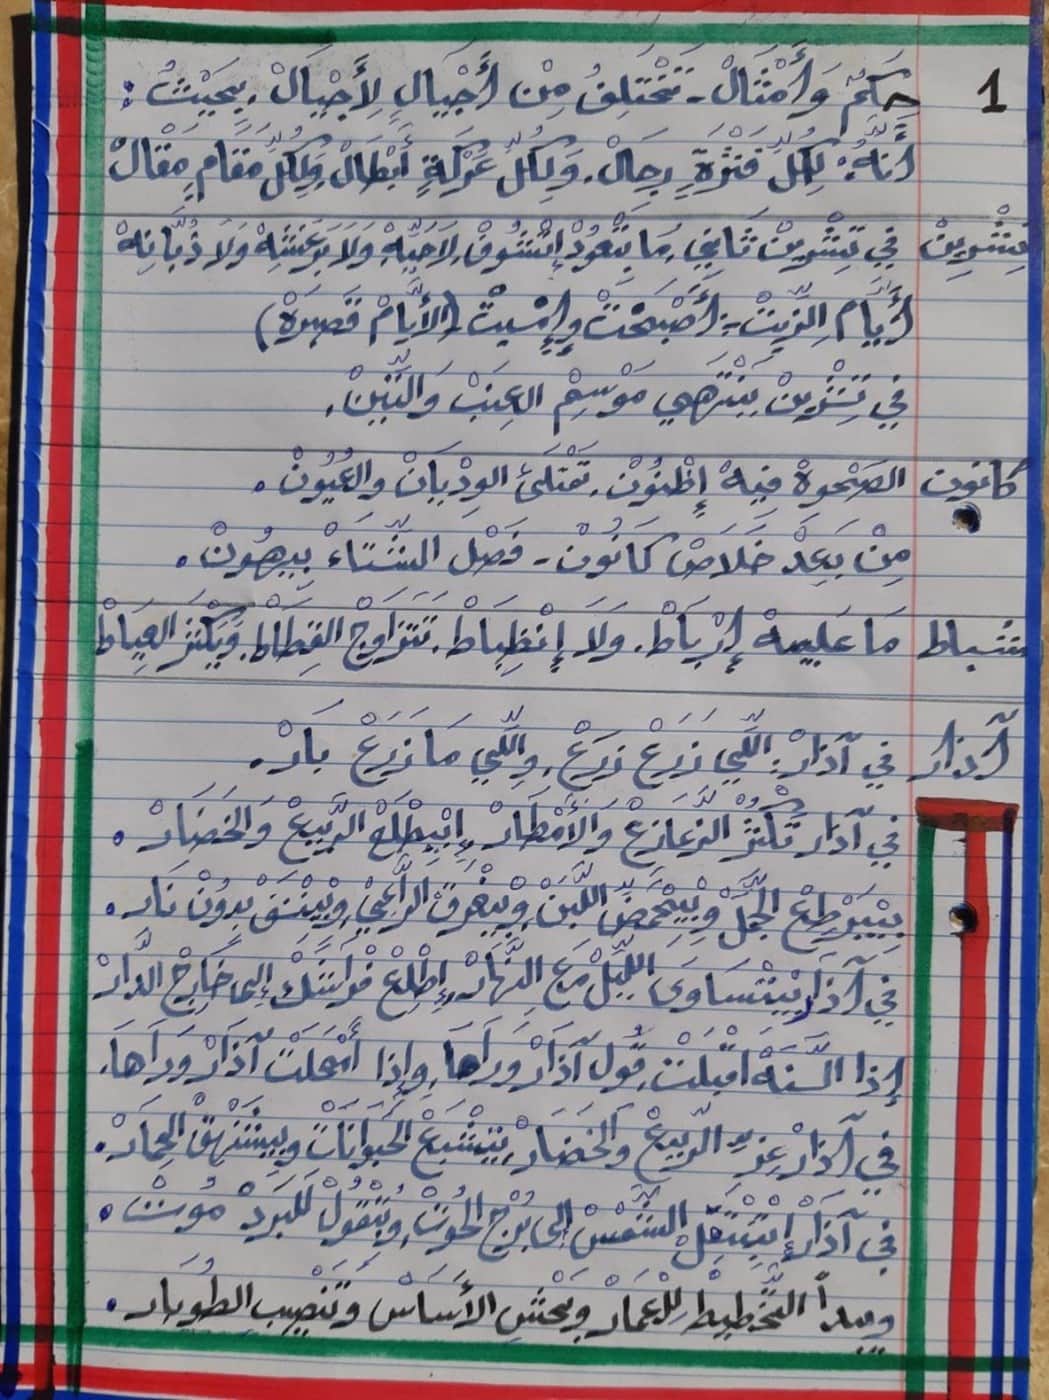 1 حِكَمٌ وَأَمْثَالْ - تَخْتَلِفُ مِنْ أَجْيَالٍ لِأَجْيَالْ. بِحَيْثُ:
أَنَّهُ: لِكُلِّ فَتْرَةٍ رِجَالْ. وَلِكُلِّ عَرْكَةٍ أَبْطَالْ وَلِكُلِّ مَقَامٍ مَقَالْ
تِشْرِينْ في تِشْرِينْ ثَانِي. مَا بِتْعُودْ إتْشُوفْ لَا حَيِّهْ وَلَا بَرْعَشِهْ وَلَا ذُبَّانِهْ
أَيَّام الزِّيتْ - أَصْبَحْتْ وإِمْسِيتْ (الأَيَّامْ قَصِيرَةْ)
في تِشْرِينْ بِنْتَهي مَوْسِمْ العِنَبْ وَالتِّينْ.
كانون الصَحْوِةْ فيهْ إِظْنُونْ. تَمْتَلئ الوِدْيَانْ والعُيُونْ.
مِنْ بَعِدْ خَلَاصْ كَانُونْ - فَصْل الشِّتَاءْ بِيهُونْ.
شباط مَا عَليهْ إرْبَاطْ. ولَا إنْظِبَاطْ. تَتَزَاوَج القِطَاطْ. وَيَكْثَر العِيَاطْ
آذار في آذَارْ: اللِّي زَرَعْ زَرَعْ، واللِّي مَا زَرَعْ بَارْ.
في آذار تَكْثُرُ الزعازع وَالأَمْطَارْ. إبْيِطْلَعْ الرَّبِيعْ وَالخَضَارْ.
بِيْبَوْرِطِعْ الجَمَلْ وِبْيِحْمَضّ اللَّبَنْ وِبْيِغْرَقْ الرَّاعْيْ وْبِيْنْشَفْ بِدُونْ نَار.
في آذَار بِيتْسَاوَى اللَّيْلْ مَعِ النَّهَارْ. إطْلِعْ فْرَاشَكْ إلى خَارِجْ الدَّارْ
إذا السَّنَةْ اقبلت. قُول آذَارْ وَرَاهَا، وإذا أَمْحَلَتْ آذَارْ وَرَاهَا.
في آذَارْ عِزّ الرَّبِيعْ وَالخَضَارْ بِتِشْبَعْ الحَيَوَانَاتْ وبِيشْنْهِقْ الحِمَارْ.
في آذَارْ إبْتِنْتِقِلْ الشَّمْسْ إلى بُرْجْ الحُوتْ، وِبْتْقُولْ لَلبَرِدْ مُوتْ.
ويبدأ التَّخْطِيطْ لِلْعَمَارْ وَيحْفش الأَسَاسْ وَتَنْصِيب الطُوبَار.